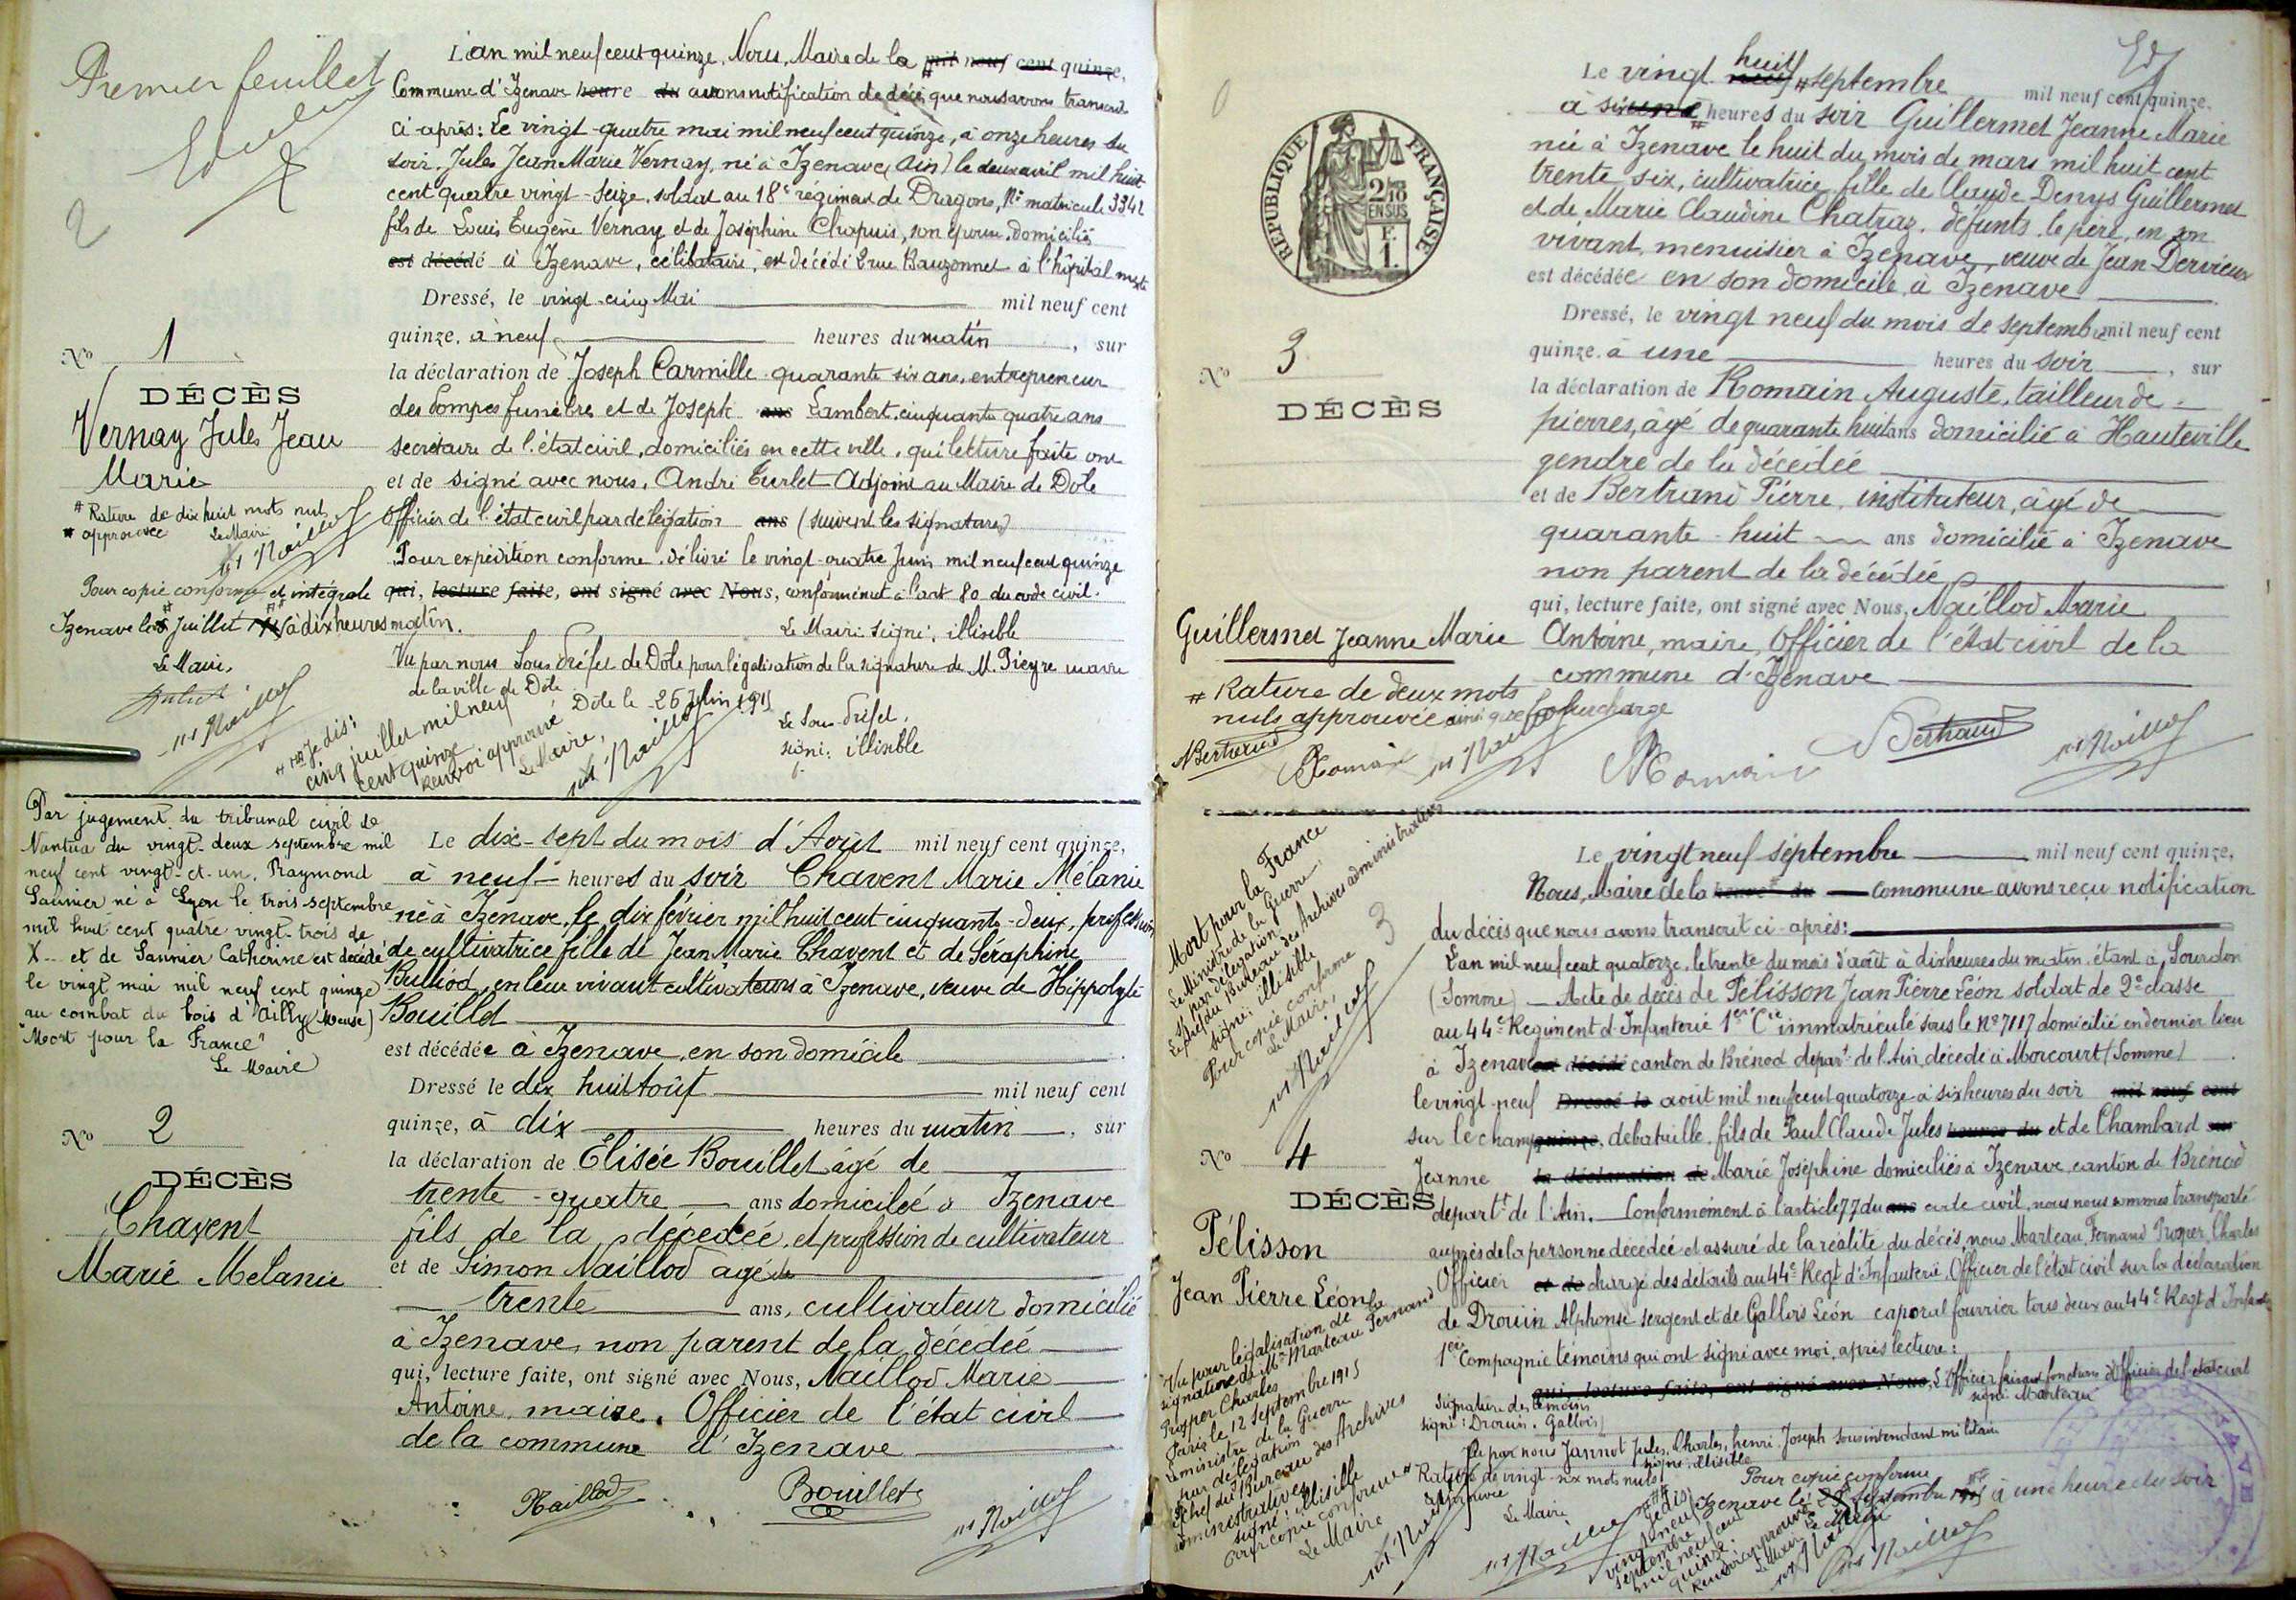 Premier feuillet
2
L'an mil neuf cent quinze, Nous, Maire de la mil neuf cent quinze,
Commune d'Izenave heure du avons notification de décès que nous avons transcrit
ci-après: Le vingt-quatre mai mil neuf cent quinze, à onze heures du
soir, Jules Jean Marie Vernay, né à Izenave (Ain) le deux avril mil huit
cent quatre vingt-seize, soldat au 18e régiment de Dragons, No matricule 3342
fils de Louis Eugène Vernay et de Joséphine Chapuis, son épouse, domicilié
est décédé à Izenave, célibataire, est décédé 2 rue Bauzonnet à l'hôpital mixte
Dressé, le vingt-cinq Mai mil neuf cent
quinze, à neuf heures du matin, sur
la déclaration de Joseph Carmille quarante six ans, entrepreneur
des Pompes funèbres et de Joseph ans Lambert, cinquante quatre ans
secrétaire de l'état civil, domiciliés en cette ville, qui lecture faite ont
et de signé avec nous, André Curlet Adjoint au Maire de Dôle
Officier de l'état civil par délégation ans (suivent les signatures)
Pour expédition conforme, délivré le vingt-quatre Juin mil neuf cent quinze
qui, lecture faite, ont signé avec Nous, conformément à l'art 80 du code civil.
Le Maire signé, illisible
Vu par nous Sous Préfet de Dôle pour légalisation de la signature de M. Pieyre maire
de la ville de Dôle
Dôle le 26 Juin 1915
Le Sous-Préfet,
signé: illisible
No 1
DÉCÈS
Vernay Jules Jean
Marie
# Rature de dix huit mots nuls
approuvée Le Maire
Pour copie conforme et intégrale
Izenave le 5 Juillet 1915 à dix heures matin.
Le Maire,
Je dis:
cinq juillet mil neuf
cent quinze
Renvoi approuvé
Le Maire,
Par jugement du tribunal civil de
Nantua du vingt-deux septembre mil
neuf cent vingt-et-un, Raymond
Saunier né à Lyon le trois septembre
mil huit cent quatre vingt-trois de
X... et de Saunier Catherine est décédé
le vingt mai mil neuf cent quinze
au combat du bois d'Ailly (Meuse)
"Mort pour la France"
Le Maire
No 2
DÉCÈS
Chavent
Marie Mélanie
Le dix-sept du mois d'Août mil neuf cent quinze,
à neuf heures du soir Chavent Marie Mélanie
né à Izenave, le dix février mil huit cent cinquante-deux, profession
de cultivatrice fille de Jean Marie Chavent et de Séraphine
Rulliod, en leur vivant cultivateurs à Izenave, veuve de Hippolyte
Bouillet
est décédée à Izenave, en son domicile
Dressé le dix huit août mil neuf cent
quinze, à dix heures du matin, sur
la déclaration de Elisée Bouillet âgé de
trente-quatre ans domicilié à Izenave
fils de la décédée, et profession de cultivateur
et de Simon Naillod âgé de
trente ans, cultivateur domicilié
à Izenave, non parent de la décédée
qui, lecture faite, ont signé avec Nous, Naillod Marie
Antoine, maire, Officier de l'état civil
de la commune d'Izenave
Naillod
Bouillet
RÉPUBLIQUE FRANÇAISE
2/10
EN SUS
F.
1.
No 3
DÉCÈS
Guillermet Jeanne Marie
# Rature de deux mots
nuls approuvée ainsi que la surcharge
Bertrand
Romain
Le vingt neuf huit # septembre mil neuf cent quinze,
à six une heures du soir Guillermet Jeanne Marie
née à Izenave le huit du mois de mars mil huit cent
trente six, cultivatrice, fille de Claude Denys Guillermet
et de Marie Claudine Chatraz, défunts, le père, en son
vivant, menuisier à Izenave, veuve de Jean Dervieux
est décédée en son domicile à Izenave
Dressé, le vingt neuf du mois de septembre mil neuf cent
quinze, à une heures du soir, sur
la déclaration de Romain Auguste, tailleur de
pierres, âgé de quarante huit ans domicilié à Hauteville
gendre de la décédée
et de Bertrand Pierre, instituteur, âgé de
quarante-huit ans domicilié à Izenave
non parent de la décédée
qui, lecture faite, ont signé avec Nous, Naillod Marie
Antoine, maire, Officier de l'état civil de la
commune d'Izenave
Romain
Bertrand
Mort pour la France
Le Ministre de la Guerre
Par délégation
Le chef du Bureau des Archives administratives
signé: illisible
Pour copie conforme
Le Maire,
3
No 4
DÉCÈS
Pélisson
Jean Pierre Léon
Vu pour légalisation de la
signature de Mr Marteau Fernand
Prosper Charles
Paris le 12 Septembre 1915
Le ministre de la Guerre
par délégation
Le chef du Bureau des Archives
administratives
signé: illisible
Pour copie conforme
Le Maire
Le vingt neuf septembre mil neuf cent quinze,
Nous, Maire de la heure du commune avons reçu notification
du décès que nous avons transcrit ci-après:
L'an mil neuf cent quatorze, le trente du mois d'août à dix heures du matin, étant à Sourdon
(Somme) — Acte de décès de Pélisson Jean Pierre Léon soldat de 2e classe
au 44e Régiment d'Infanterie 1ère Cie immatriculé sous le No 7117 domicilié en dernier lieu
à Izenave est décédé canton de Brénod départt de l'Ain, décédé à Morcourt (Somme)
le vingt-neuf Dressé le août mil neuf cent quatorze à six heures du soir mil neuf cent
sur le champ quinze, de bataille, fils de Paul Claude Jules heures du et de Chambard sur
Jeanne la déclaration de Marie Joséphine domiciliés à Izenave, canton de Brénod
départt de l'Ain. — Conformément à l'article 77 du ans code civil, nous nous sommes transporté
auprès de la personne décédée et assuré de la réalité du décès, nous Marteau Fernand Prosper, Charles
Officier et de chargé des détails au 44e Regt d'Infanterie, Officier de l'état civil sur la déclaration
de Drouin Alphonse sergent et de Gallois Léon caporal fourrier tous deux au 44e Regt d'Infanterie
1ère Compagnie témoins qui ont signé avec moi, après lecture:
qui, lecture faite, ont signé avec Nous, L'Officier faisant fonctions d'Officier de l'état civil
signé Marteau
Signature des témoins
signé: Drouin, Gallois
Vu par nous Jannot Jules, Charles, henri, Joseph sous intendant militaire
signé: illisible
Rature de vingt-six mots nuls
approuvée
Le Maire
Pour copie conforme
Izenave le 29 Septembre 1915 à une heure du soir
Je dis
vingt neuf
septembre
mil neuf cent
quinze.
Renvoi approuvé
Le Maire